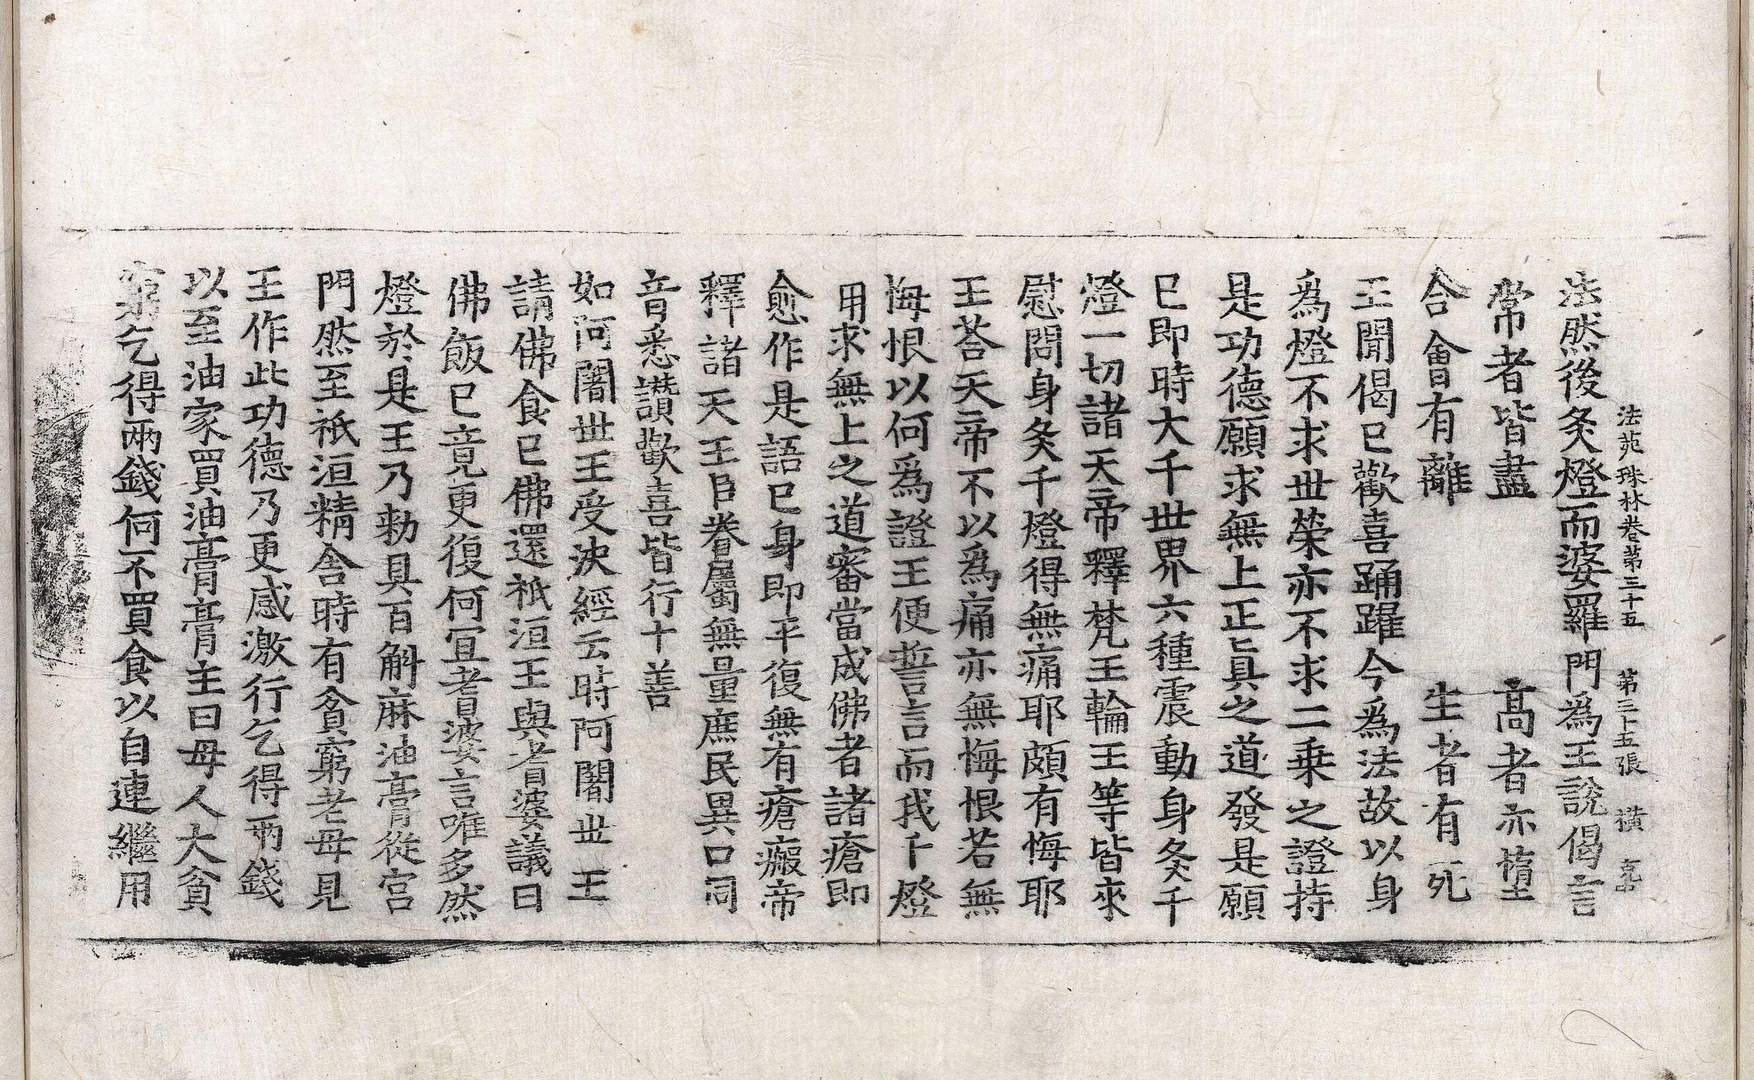 法苑珠林卷第三十五　第三十五張　橫
法然後灸燈而婆羅門為王說偈言
常者皆盡　高者亦墮
合會有離　生者有死
王聞偈已歡喜踊躍今爲法故以身
爲燈不求世榮亦不求二乘之證持
是功德願求無上正真之道發是願
已即時大千世界六種震動身灸千
燈一切諸天帝釋梵王輪王等皆來
慰問身灸千燈得無痛耶頗有悔耶
王荅天帝不以爲痛亦無悔恨若無
悔恨以何爲證王便誓言而我千燈
用求無上之道審當成佛者諸瘡即
愈作是語已身即平復無有瘡瘢帝
釋諸天王臣眷屬無量庶民異口同
音悉讚歡喜皆行十善
如阿闍世王受決經云時阿闍世王
請佛食已佛還祇洹王與耆婆議曰
佛飯已竟更復何宜耆婆言唯多然
燈於是王乃勑具百斛麻油膏從宮
門然至祇洹精舍時有貧窮老母見
王作此功德乃更感激行乞得兩錢
以至油家買油膏膏主曰母人大貧
窮乞得兩錢何不買食以自連繼用